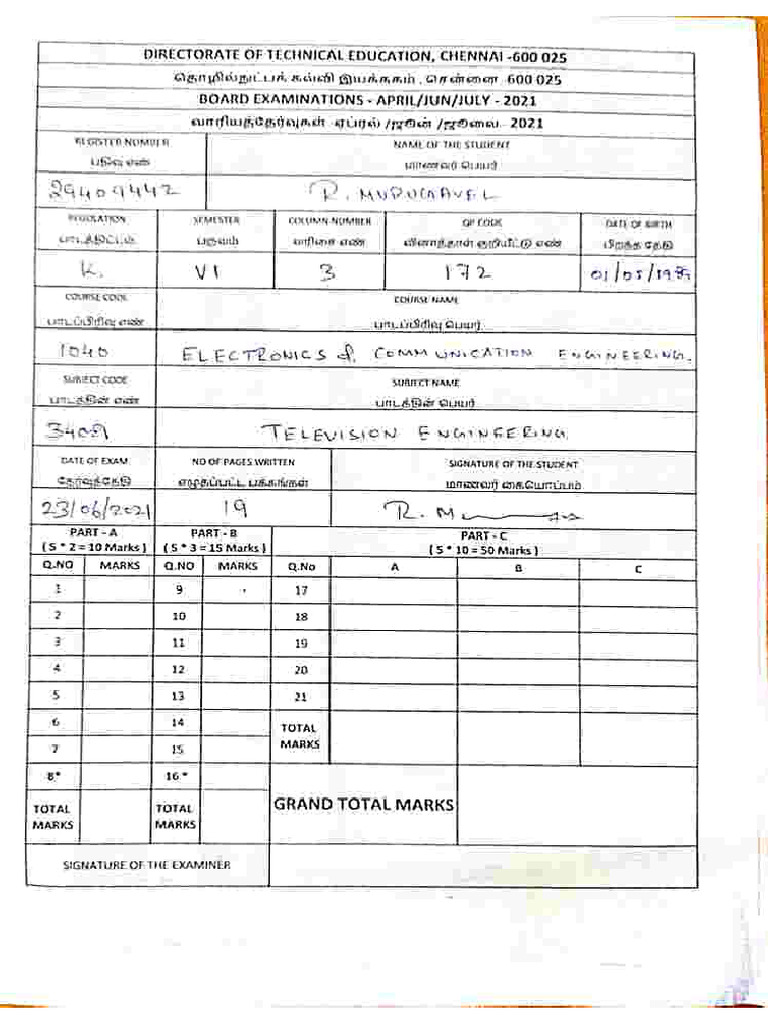 DIRECTORATE OF TECHNICAL EDUCATION, CHENNAI -600 025
தொழில்நுட்பக் கல்வி இயக்ககம் , சென்னை -600 025
BOARD EXAMINATIONS - APRIL/JUN/JULY - 2021
வாரியத்தேர்வுகள் ஏப்ரல் /ஜூன் /ஜூலை - 2021
REGISTER NUMBER NAME OF THE STUDENT
பதிவு எண் மாணவர் பெயர்
29409442 R. MURUGAVEL
REGULATION SEMESTER COLUMN NUMBER QP CODE DATE OF BIRTH
பாடத்திட்டம் பருவம் வரிசை எண் வினாத்தாள் குறியீட்டு எண் பிறந்த தேதி
K. VI 3 172 01/05/1989
COURSE CODE COURSE NAME
பாடப்பிரிவு எண் பாடப்பிரிவு பெயர்
1040 ELECTRONICS & COMMUNICATION ENGINEERING.
SUBJECT CODE SUBJECT NAME
பாடத்தின் எண் பாடத்தின் பெயர்
34081 TELEVISION ENGINEERING
DATE OF EXAM NO OF PAGES WRITTEN SIGNATURE OF THE STUDENT
தேர்வுத்தேதி எழுதப்பட்ட பக்கங்கள் மாணவர் கையொப்பம்
23/06/2021 19 R. M
PART - A PART - B PART - C
( 5 * 2 = 10 Marks ) ( 5 * 3 = 15 Marks ) ( 5 * 10 = 50 Marks )
Q.NO MARKS Q.NO MARKS Q.No A B C
1 9 17
2 10 18
3 11 19
4 12 20
5 13 21
6 14 TOTAL MARKS
7 15
8* 16 *
TOTAL MARKS TOTAL MARKS GRAND TOTAL MARKS
SIGNATURE OF THE EXAMINER